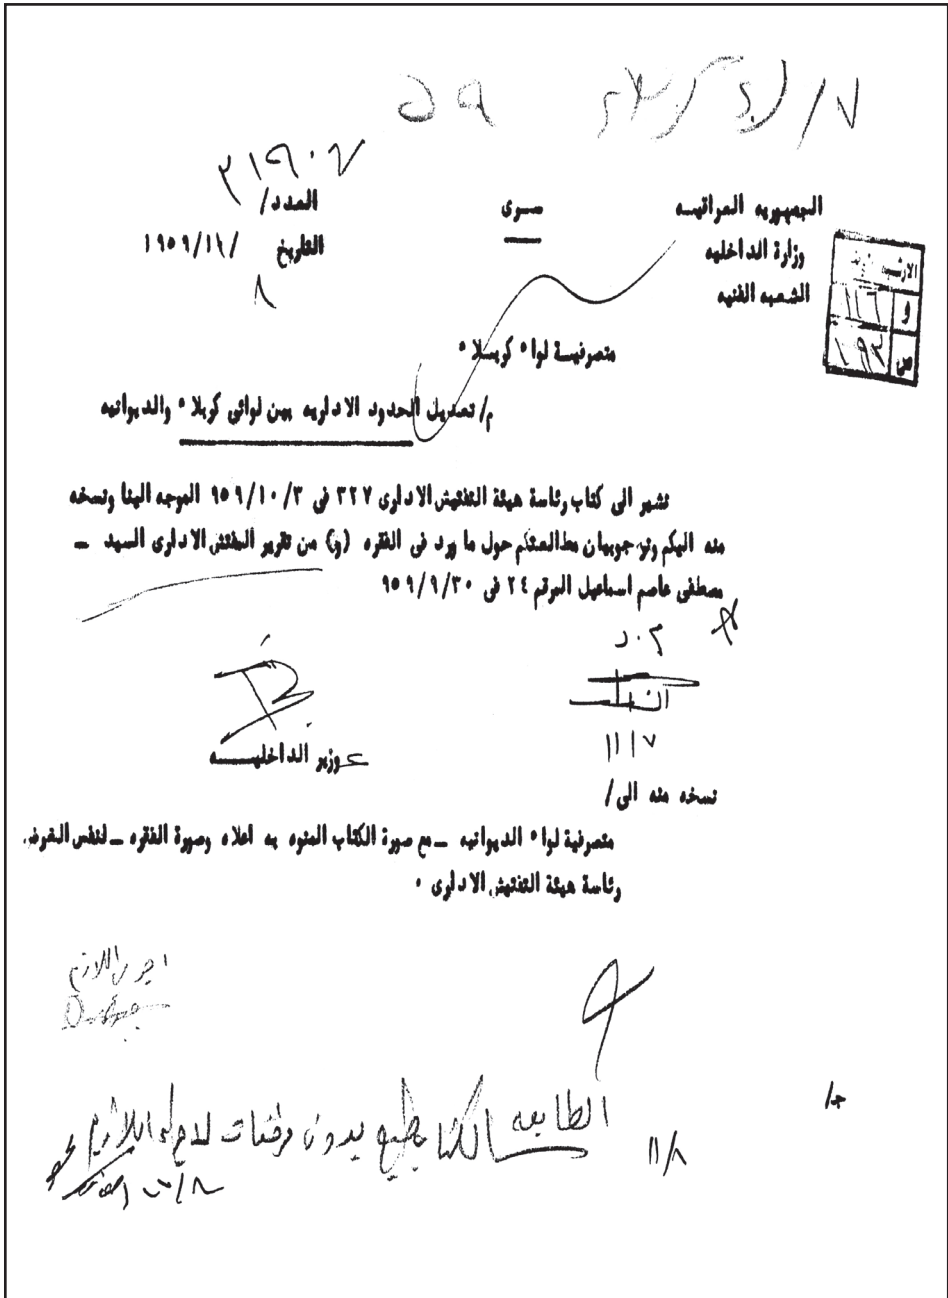 ٣١٩٠٧
الجمهوريه العراقيسه
سسرى
العدد/
وزارة الداخليه
التاريخ / ١١/ ١٩٥٩
٨
الشعبه الفنيه
الارشيف
و ١١٦
ص ١٩٣
متصرفيسة لواء كربسلاء
م/ تعديل الحدود الاداريه بين لوائى كربلاء والديوانيه
نشير الى كتاب رئاسة هيئة التفتيش الادارى ٣٢٧ فى ٩٥٩/١٠/٣ الموجه الينا ونسخه
منه اليكم ونرجو بيان مطالعتكم حول ما ورد فى الفقره (و) من تقرير المفتش الادارى السيد ـ
مصطفى عاصم اسماعيل المرقم ٢٤ فى ٩٥٩/٩/٣٠
م.د
١١/٧
ع وزير الداخليـــــه
نسخه منه الى/
متصرفية لواء الديوانيه ــ مع صورة الكتاب المنوه به اعلاه وصورة الفقره ــ لنفس الغرض.
رئاسة هيئة التفتيش الادارى ٠
اجر اللازم
ج/
الطابعه
الكتاب طبع بدون مرفقات اللازم
١١/٨